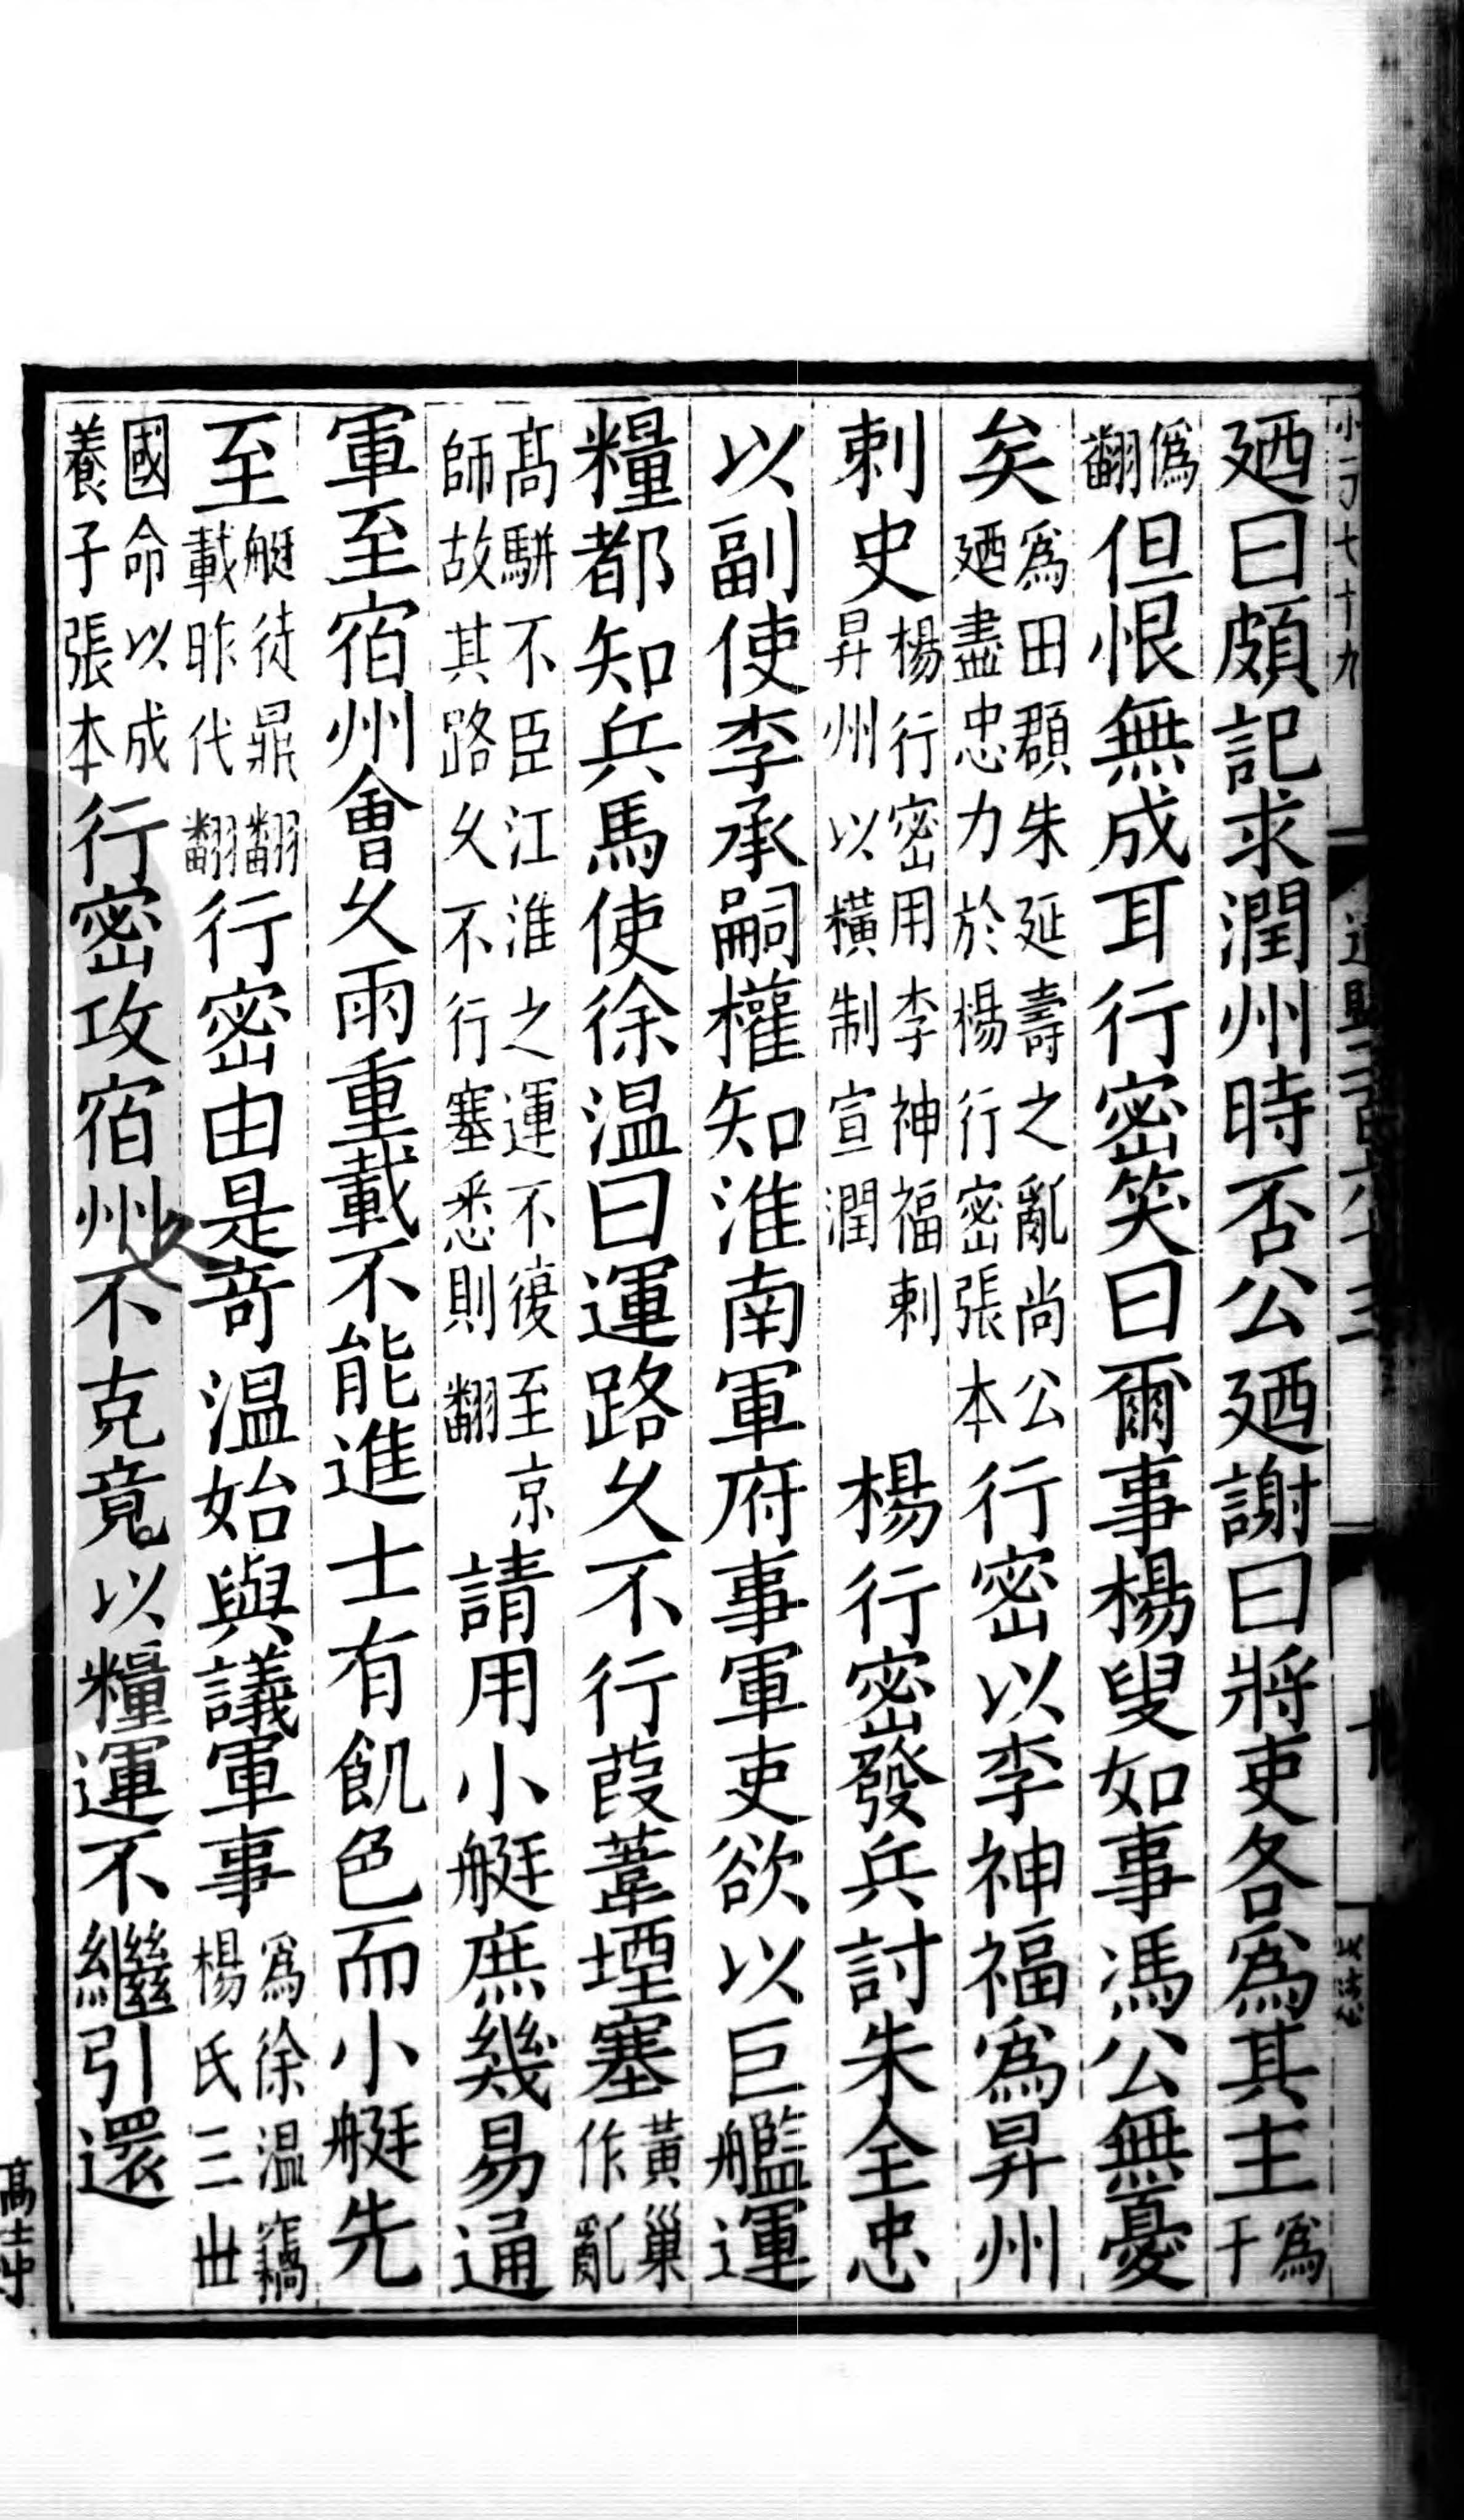 廼曰頗記求潤州時否公廼謝曰將吏各爲其主爲于
僞翻但恨無成耳行密笑曰爾事楊叟如事馮公無憂
矣爲田頵朱延壽之亂尚公廼盡忠力於楊行密張本行密以李神福爲昇州
刺史楊行密用李神福刺昇州以橫制宣潤楊行密發兵討朱全忠
以副使李承嗣權知淮南軍府事軍吏欲以巨艦運
糧都知兵馬使徐温曰運路久不行葭葦堙塞黃巢作亂
高駢不臣江淮之運不復至京師故其路久不行塞悉則翻請用小艇庶幾易通
軍至宿州會久雨重載不能進士有飢色而小艇先
至艇徒鼎翻載昨代翻行密由是奇温始與議軍事爲徐温竊楊氏三世
國命以成養子張本行密攻宿州久不克竟以糧運不繼引還